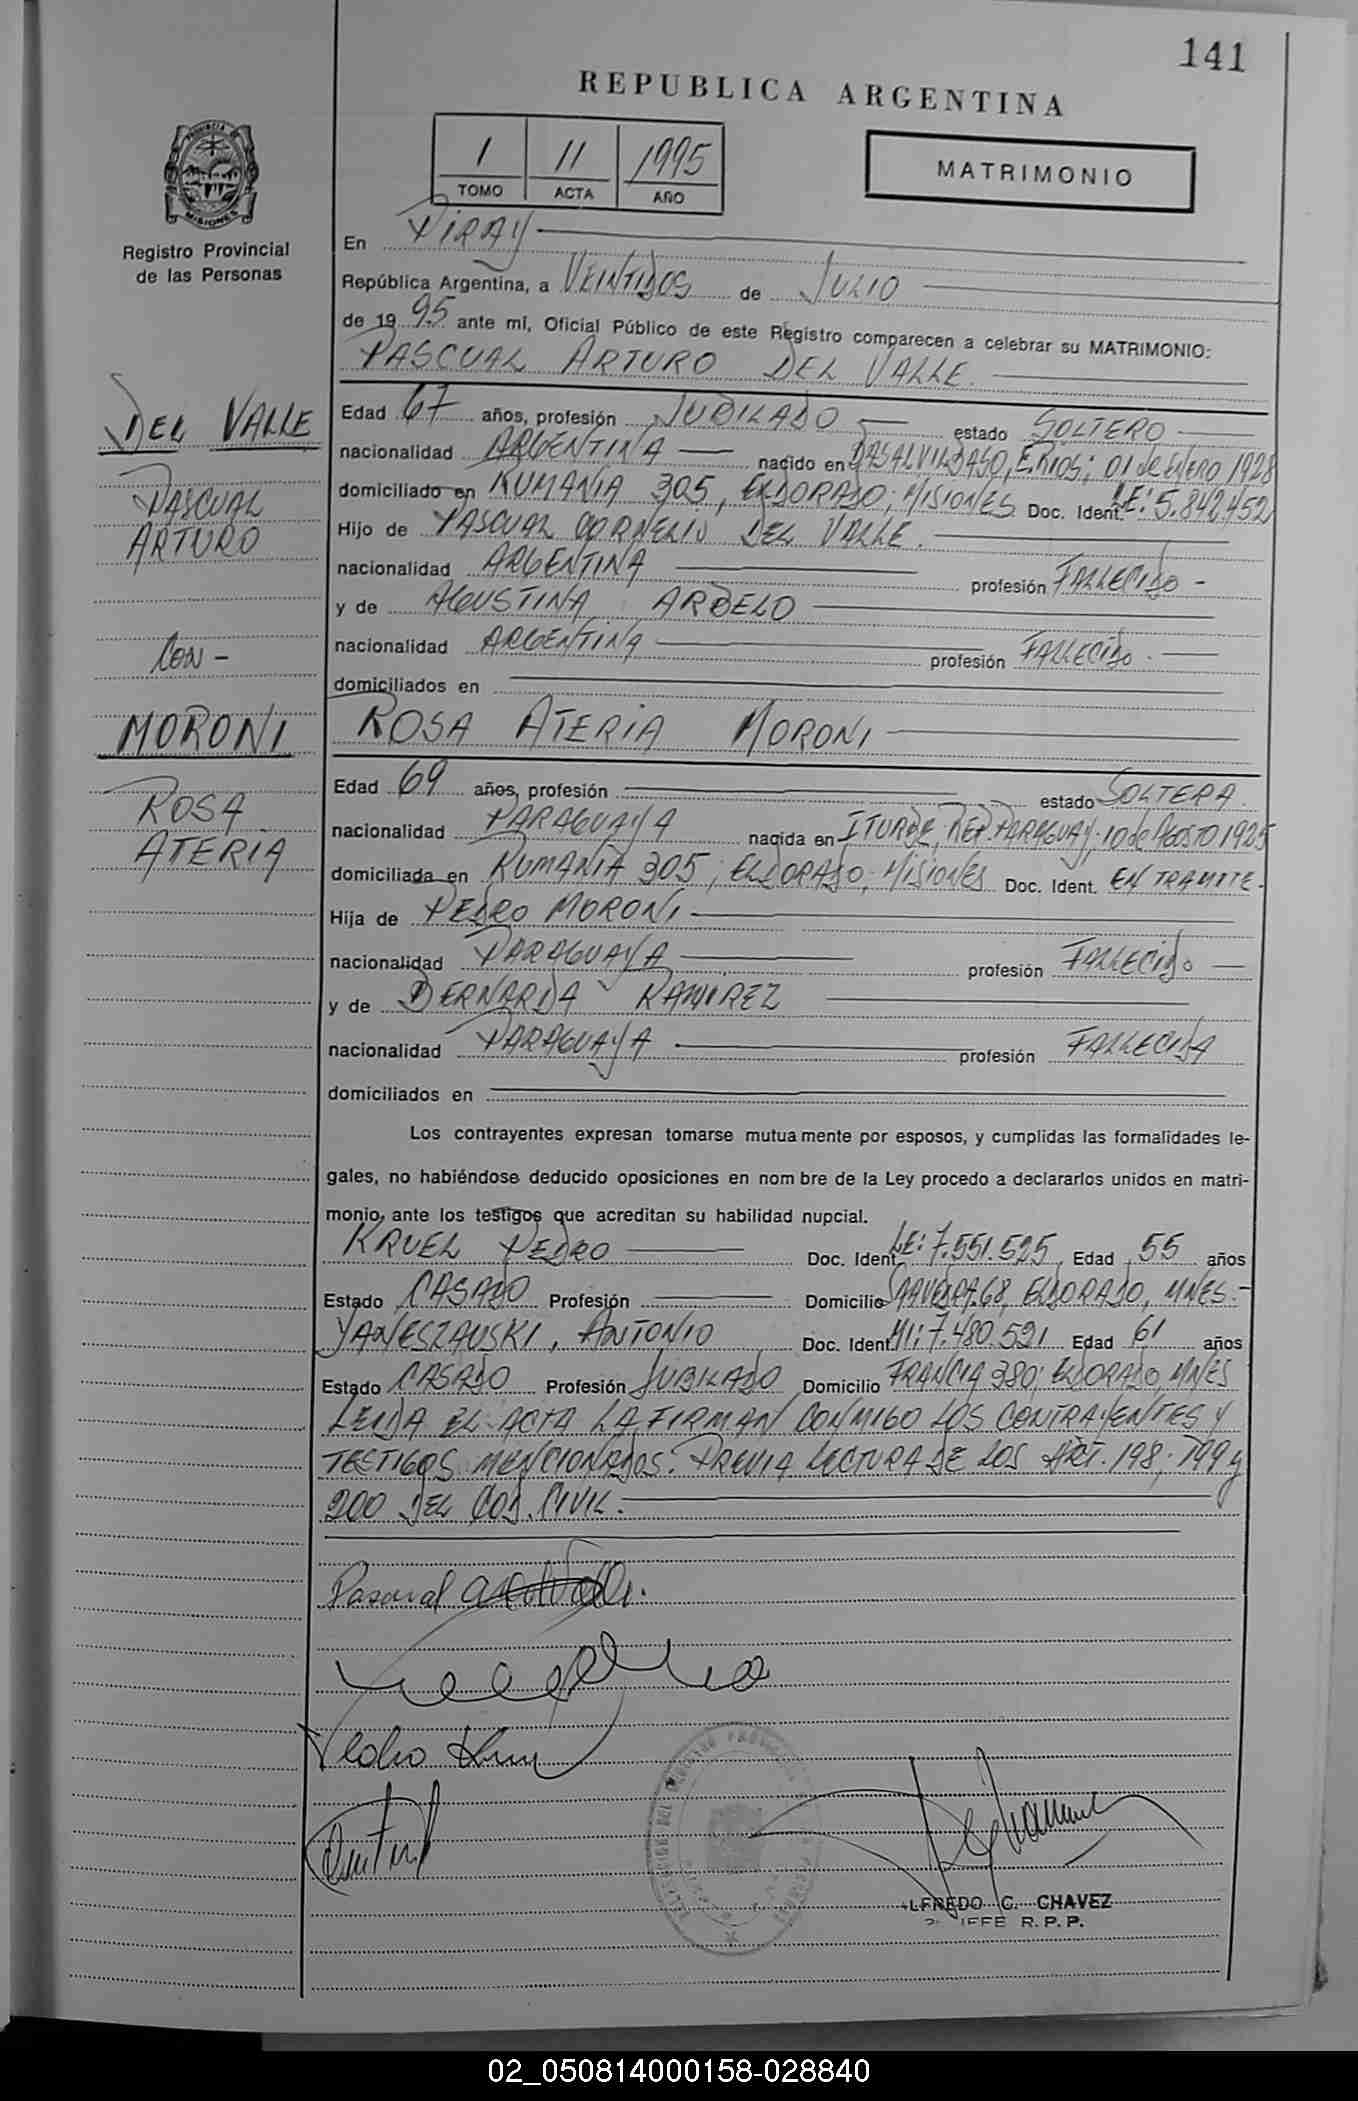 141
REPUBLICA ARGENTINA
PROVINCIA DE MISIONES
Registro Provincial
de las Personas
1 11 1995
TOMO ACTA AÑO
MATRIMONIO
En PIRAY
República Argentina, a VEINTIDOS de JULIO
de 1995 ante mí, Oficial Público de este Registro comparecen a celebrar su MATRIMONIO:
PASCUAL ARTURO DEL VALLE
DEL VALLE
PASCUAL
ARTURO
CON -
MORONI
ROSA
ATERIA
Edad 67 años, profesión JUBILADO estado SOLTERO
nacionalidad ARGENTINA nacido en BASALVILBASO, E.RIOS; 01 de ENERO 1928
domiciliado en RUMANIA 305, ELDORADO, MISIONES Doc. Ident. LE: 5.842.452
Hijo de PASCUAL CORNELIO DEL VALLE.
nacionalidad ARGENTINA profesión FALLECIDO -
y de AGUSTINA ARBELO
nacionalidad ARGENTINA profesión FALLECIDO.
domiciliados en
ROSA ATERIA MORONI
Edad 69 años, profesión estado SOLTERA.
nacionalidad PARAGUAYA nacida en ITURBE, REP. PARAGUAY; 10 de AGOSTO 1925
domiciliada en RUMANIA 305; ELDORADO; MISIONES Doc. Ident. EN TRAMITE.
Hija de PEDRO MORONI
nacionalidad PARAGUAYA profesión FALLECIDO
y de BERNARDA RAMIREZ
nacionalidad PARAGUAYA profesión FALLECIDA
domiciliados en
Los contrayentes expresan tomarse mutuamente por esposos, y cumplidas las formalidades le-
gales, no habiéndose deducido oposiciones en nombre de la Ley procedo a declararlos unidos en matri-
monio, ante los testigos que acreditan su habilidad nupcial.
KRUEL PEDRO Doc. Ident. LE: 7.551.525 Edad 55 años
Estado CASADO Profesión Domicilio SAAVEDRA 68, ELDORADO, MNES.-
YANESZAUSKI, ANTONIO Doc. Ident. MI: 7.480.591 Edad 61 años
Estado CASADO Profesión JUBILADO Domicilio FRANCIA 380; ELDORADO, MNES
LEIDA EL ACTA LA FIRMAN CONMIGO LOS CONTRAYENTES Y
TESTIGOS MENCIONADOS. PREVIA LECTURA DE LOS ART. 198; 199 y
200 DEL COD. CIVIL.
Pascual
Pedro
ALFREDO C. CHAVEZ
JEFE R. P. P.
02_050814000158-028840